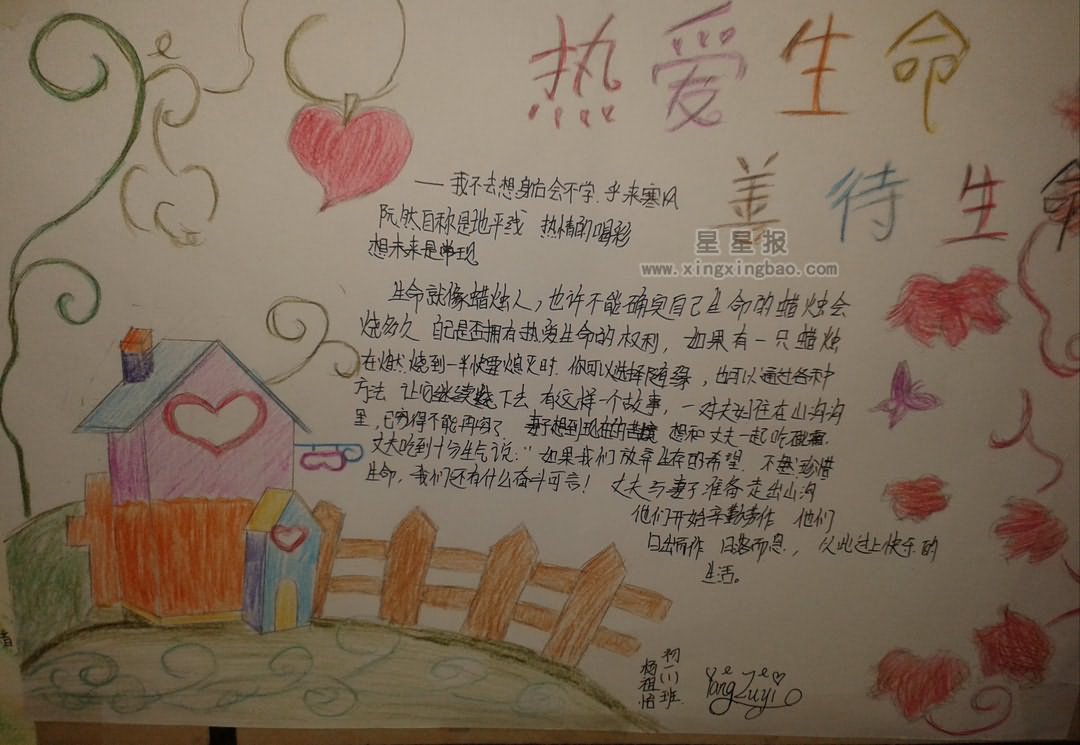 热爱生命
善待生命
——我不去想身后会不学.乎来寒风
既然目称是地平线 热情的喝彩
想未来是
星星报
www.xingxingbao.com
生命就像蜡烛人，也许不能确臭自己生命的蜡烛会
烧多久 自己是否拥有热爱生命的权利，如果有一只蜡烛
在燃烧到一半快要熄灭时.你可以选择随缘，也可以通过各种
方法 让它继续烧下去 有这样一个故事，一对夫妇住在山沟沟
里，已穷得不能再穷了 妻子想到现在的 想和丈夫一起吃
丈夫吃到十分生气说："如果我们放弃生存的希望.不 珍惜
生命，我们还有什么奋斗可言！丈夫与妻子准备走出山沟
他们开始辛勤劳作 他们
日出而作 日落而息，从此过上快乐的
生活。
初一(1)班
杨祖怡
Yang Zuyi